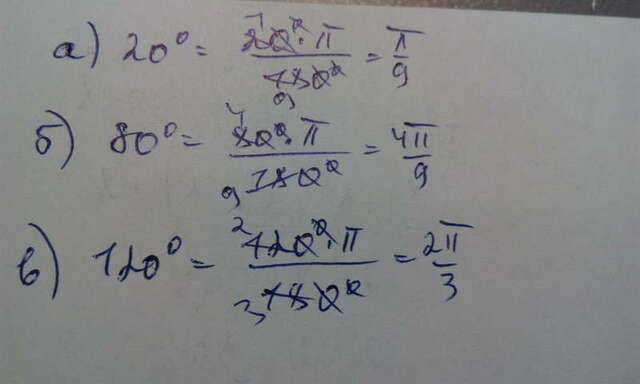 а) 20° = 20°·π/180° = π/9
б) 80° = 80°·π/180° = 4π/9
в) 120° = 120°·π/180° = 2π/3